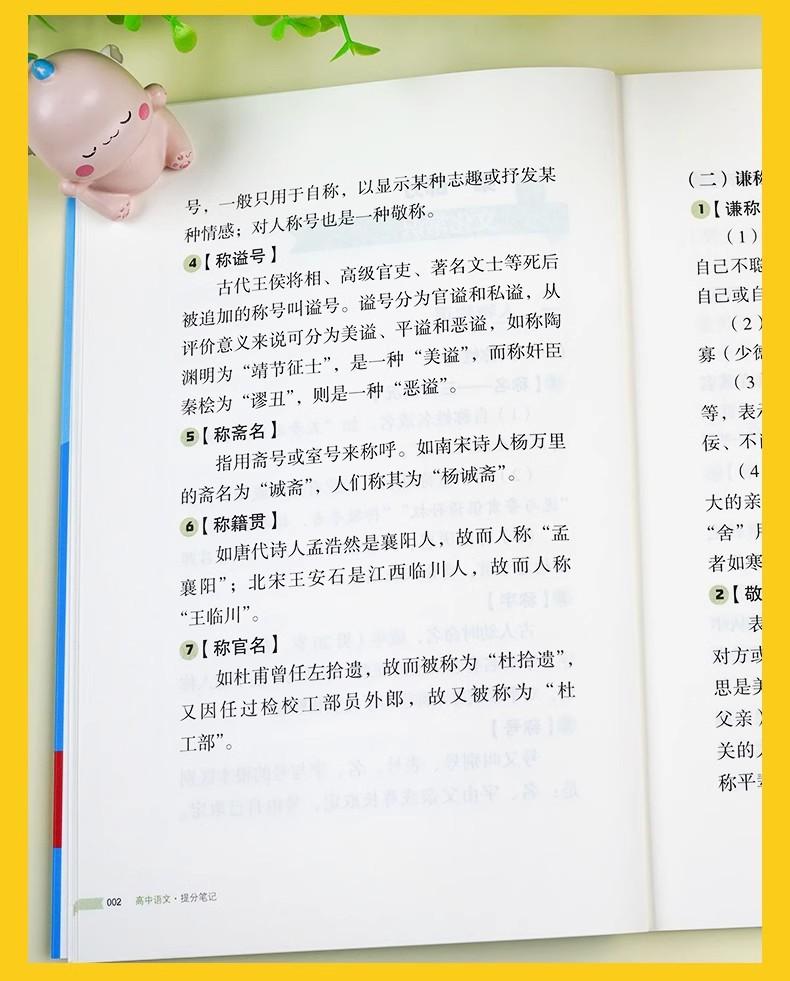 号，一般只用于自称，以显示某种志趣或抒发某
种情感；对人称号也是一种敬称。
4【称谥号】
古代王侯将相、高级官吏、著名文士等死后
被追加的称号叫谥号。谥号分为官谥和私谥，从
评价意义来说可分为美谥、平谥和恶谥，如称陶
渊明为“靖节征士”，是一种“美谥”，而称奸臣
秦桧为“谬丑”，则是一种“恶谥”。
5【称斋名】
指用斋号或室号来称呼。如南宋诗人杨万里
的斋名为“诚斋”，人们称其为“杨诚斋”。
6【称籍贯】
如唐代诗人孟浩然是襄阳人，故而人称“孟
襄阳”；北宋王安石是江西临川人，故而人称
“王临川”。
7【称官名】
如杜甫曾任左拾遗，故而被称为“杜拾遗”，
又因任过检校工部员外郎，故又被称为“杜
工部”。
002 高中语文·提分笔记
（二）谦称
1【谦称
（1）
自己不聪
自己或自
（2）
寡（少德
（3
等，表示
佞、不
（4
大的亲
“舍”
者如寒
2【敬
表
对方或
思是美
父亲）
关的
称平辈